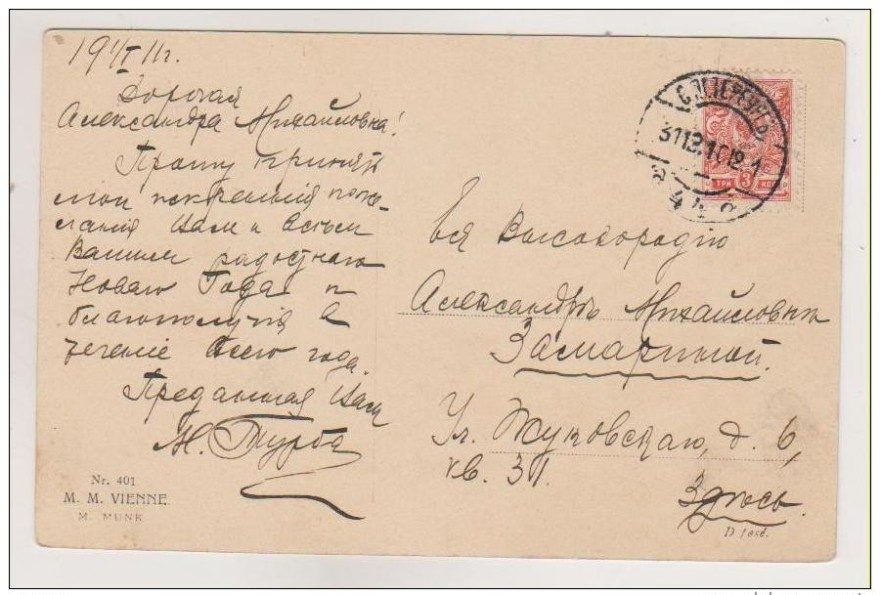 19 1/I 11 г.
Дорогая
Александра Михайловна!
Прошу принять
мои искреннія поже-
ланія Вам и всѣм
Вашим радостнаго
Новаго Года и
благополучія в
теченіе всего года.
Преданная Вам
Н. Турба
Nr. 401
M. M. VIENNE
M. MUNK
С.ПЕТЕРБУРГ
31.12.10
ТРИ
3
КОП
Ея Высокородію
Александрѣ Михайловнѣ
Замариной.
Ул. Жуковскаго, д. 6,
кв. 31.
Здѣсь.